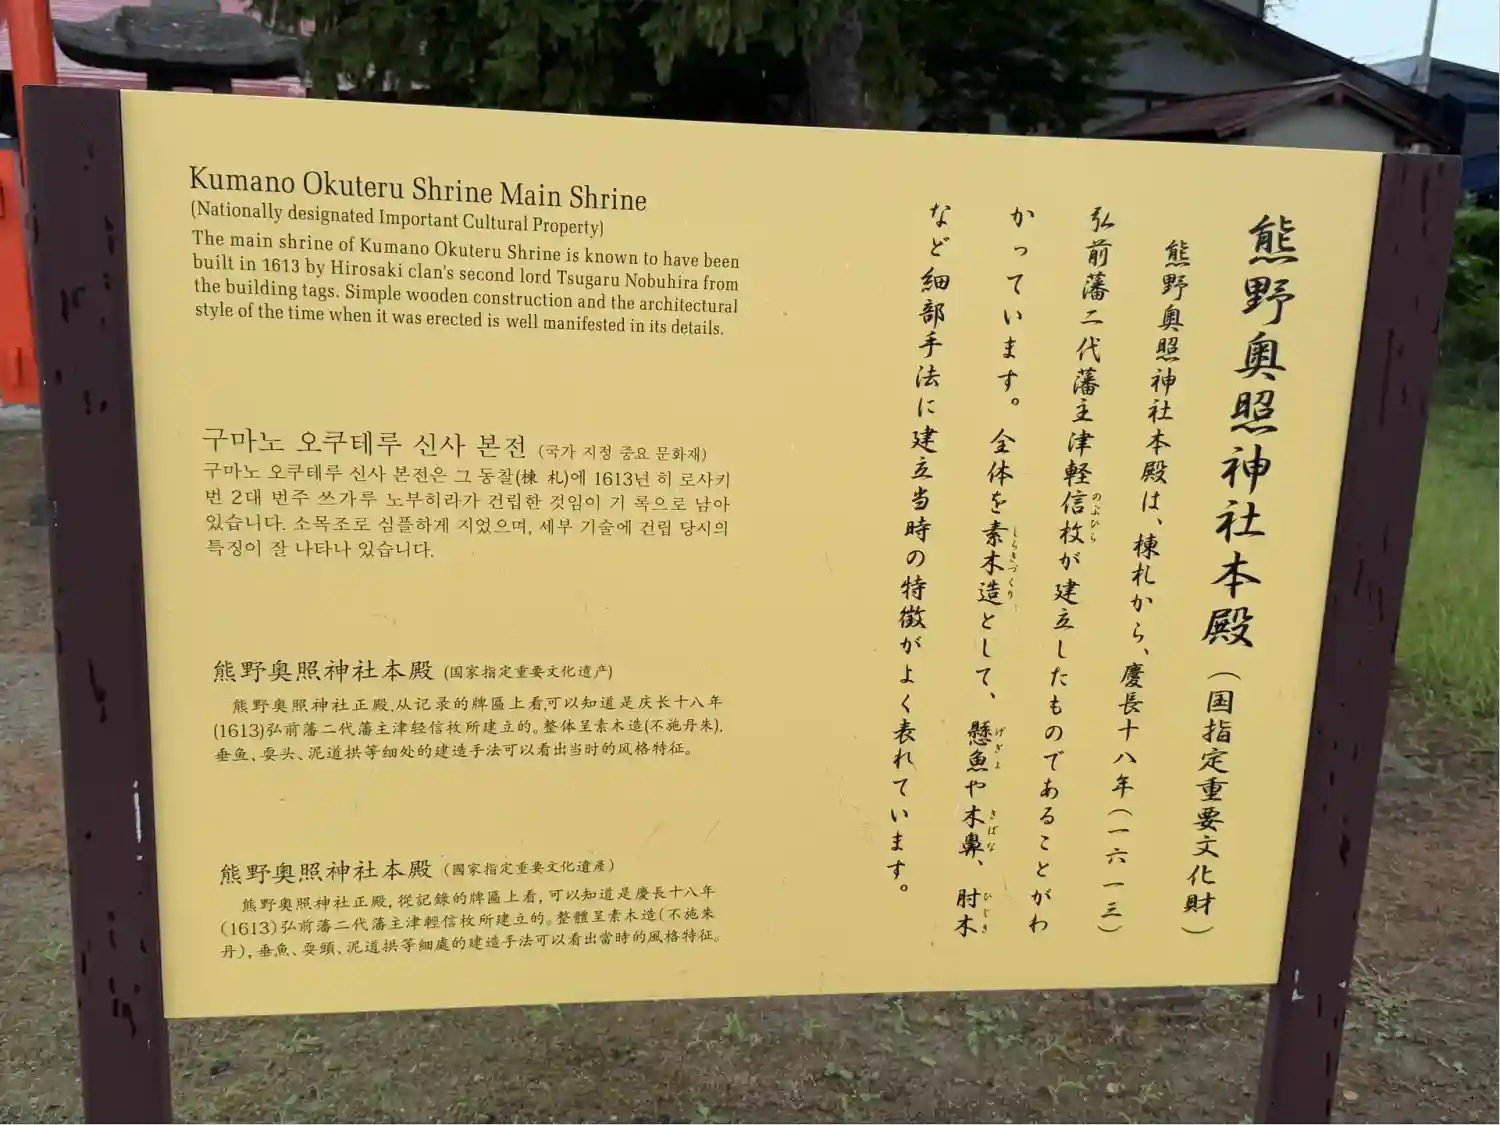 Kumano Okuteru Shrine Main Shrine
(Nationally designated Important Cultural Property)
The main shrine of Kumano Okuteru Shrine is known to have been
built in 1613 by Hirosaki clan's second lord Tsugaru Nobuhira from
the building tags. Simple wooden construction and the architectural
style of the time when it was erected is well manifested in its details.
구마노 오쿠테루 신사 본전 (국가 지정 중요 문화재)
구마노 오쿠테루 신사 본전은 그 동찰(棟 札)에 1613년 히 로사키
번 2대 번주 쓰가루 노부히라가 건립한 것임이 기 록으로 남아
있습니다. 소목조로 심플하게 지었으며, 세부 기술에 건립 당시의
특징이 잘 나타나 있습니다.
熊野奥照神社本殿 (国家指定重要文化遺产)
熊野奥照神社正殿,从记录的牌匾上看,可以知道是庆长十八年
(1613)弘前藩二代藩主津轻信枚所建立的。整体呈素木造(不施丹朱),
垂鱼、耍头、泥道拱等细处的建造手法可以看出当时的风格特征。
熊野奥照神社本殿 (國家指定重要文化遺產)
熊野奥照神社正殿, 從記錄的牌匾上看, 可以知道是慶長十八年
(1613)弘前藩二代藩主津輕信枚所建立的。整體呈素木造(不施朱
丹), 垂魚、耍頭、泥道拱等細處的建造手法可以看出當時的風格特征。
熊野奥照神社本殿(国指定重要文化財)
熊野奥照神社本殿は、棟札から、慶長十八年(一六一三)
弘前藩二代藩主津軽信枚が建立したものであることがわ
のぶひら
かっています。全体を素木造として、懸魚や木鼻、肘木
しらきづくり
げぎょ
きばな
ひじき
など細部手法に建立当時の特徴がよく表れています。